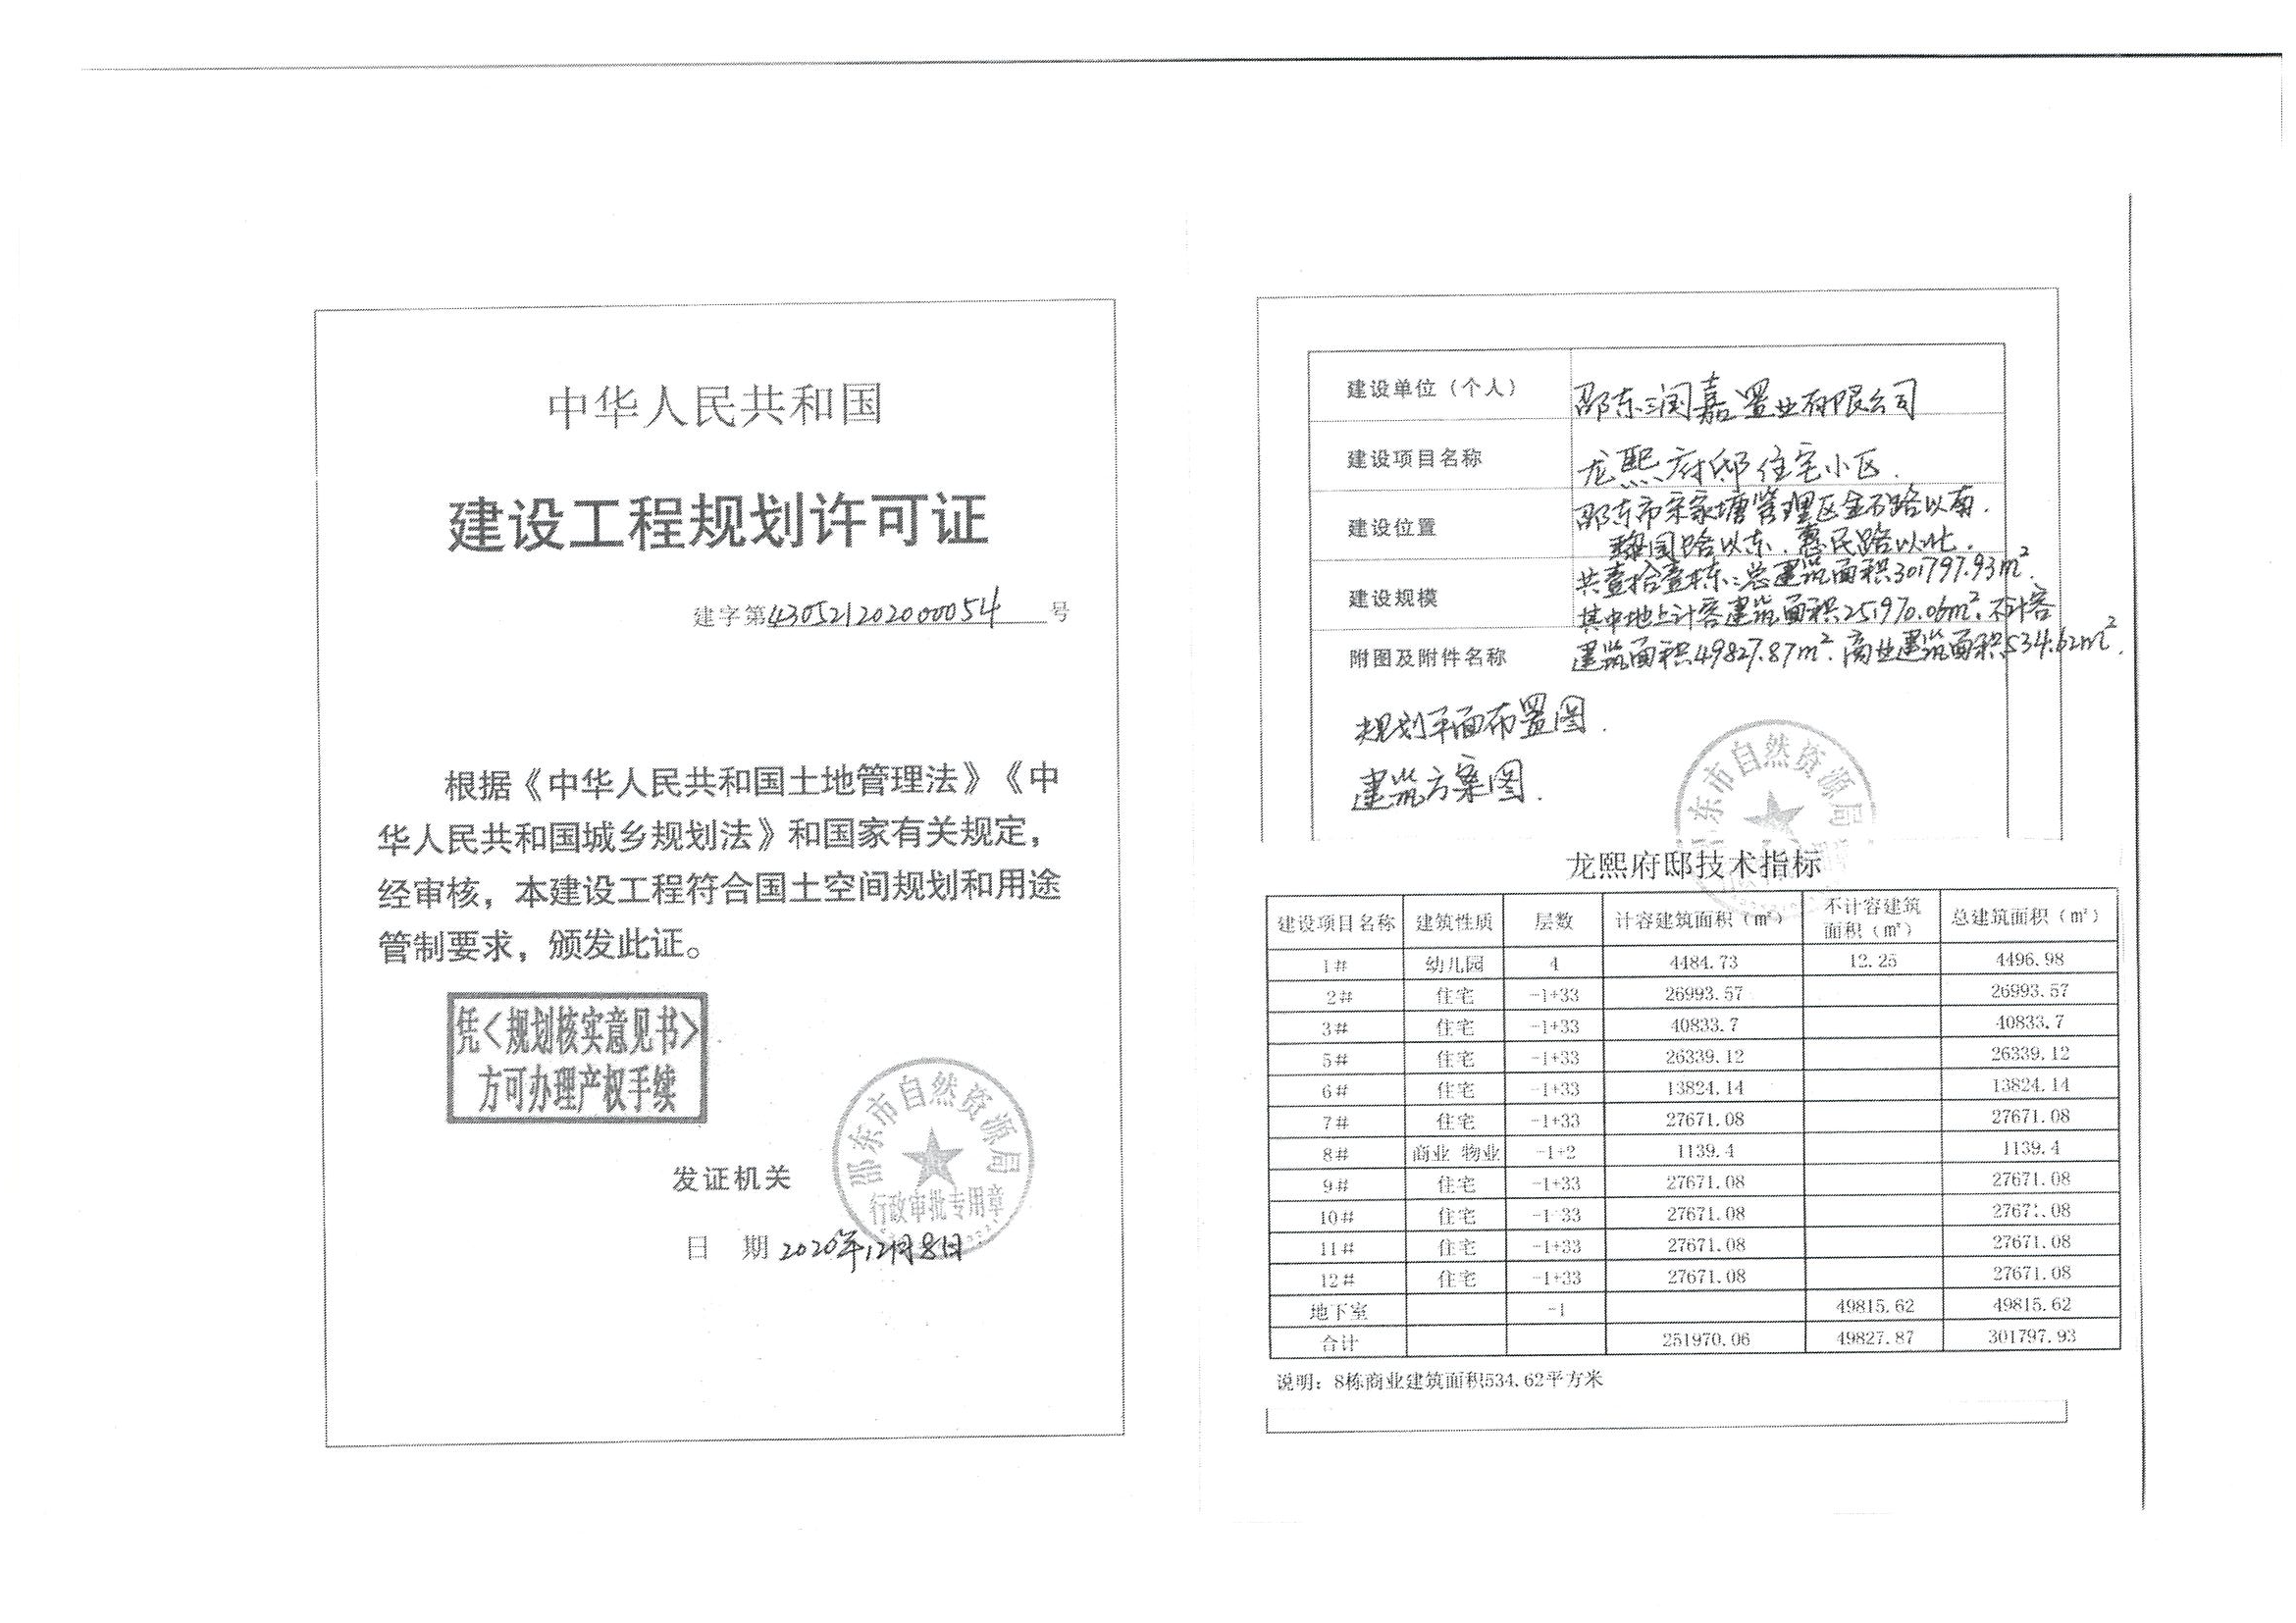 中华人民共和国
建设工程规划许可证
建字第430521202000054号
根据《中华人民共和国土地管理法》《中
华人民共和国城乡规划法》和国家有关规定，
经审核，本建设工程符合国土空间规划和用途
管制要求，颁发此证。
凭<规划核实意见书>
方可办理产权手续
邵东市自然资源局
行政审批专用章
发证机关
日 期 2020年12月8日
建设单位（个人） 邵东润嘉置业有限公司
建设项目名称 龙熙府邸住宅小区.
建设位置 邵东市宋家塘管理区金石路以南.
路以东、惠民路以北.
建设规模 共壹拾壹栋:总建筑面积301797.93m².
其中地上计容建筑面积251970.06m².不计容
附图及附件名称 建筑面积49827.87m².商业建筑面积534.62m².
规划平面布置图.
建筑方案图.
邵东市自然资源局
龙熙府邸技术指标
建设项目名称 建筑性质 层数 计容建筑面积（㎡） 不计容建筑面积（㎡） 总建筑面积（㎡）
1# 幼儿园 4 4484.73 12.25 4496.98
2# 住宅 -1+33 26993.57 26993.57
3# 住宅 -1+33 40833.7 40833.7
5# 住宅 -1+33 26339.12 26339.12
6# 住宅 -1+33 13824.14 13824.14
7# 住宅 -1+33 27671.08 27671.08
8# 商业 物业 -1+2 1139.4 1139.4
9# 住宅 -1+33 27671.08 27671.08
10# 住宅 -1+33 27671.08 27671.08
11# 住宅 -1+33 27671.08 27671.08
12# 住宅 -1+33 27671.08 27671.08
地下室 -1 49815.62 49815.62
合计 251970.06 49827.87 301797.93
说明：8栋商业建筑面积534.62平方米